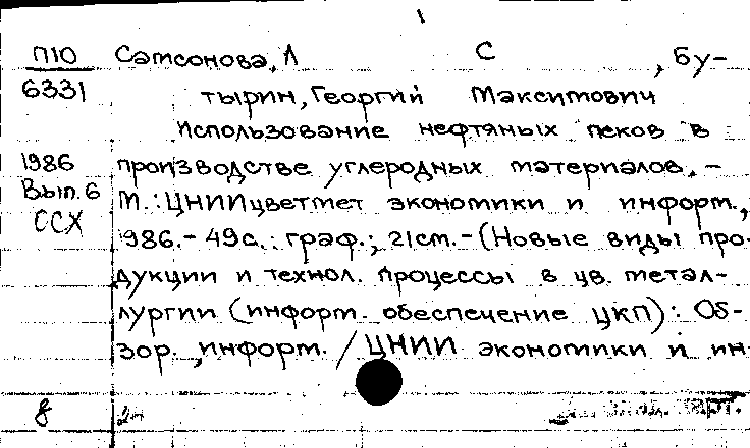 П10 Самсонова, Л С , Бу-
6331 тырин, Георгий Максимович
Использование нефтяных пеков в
1986 производстве углеродных материалов. –
Вып. 6 М.: ЦНИИцветмет экономики и информ.,
ССХ 1986. – 49с.: граф.; 21см. – (Новые виды про
дукции и технол. процессы в цв. метал-
лургии (информ. обеспечение ЦКП): Об-
зор. информ. / ЦНИИ экономики и ин